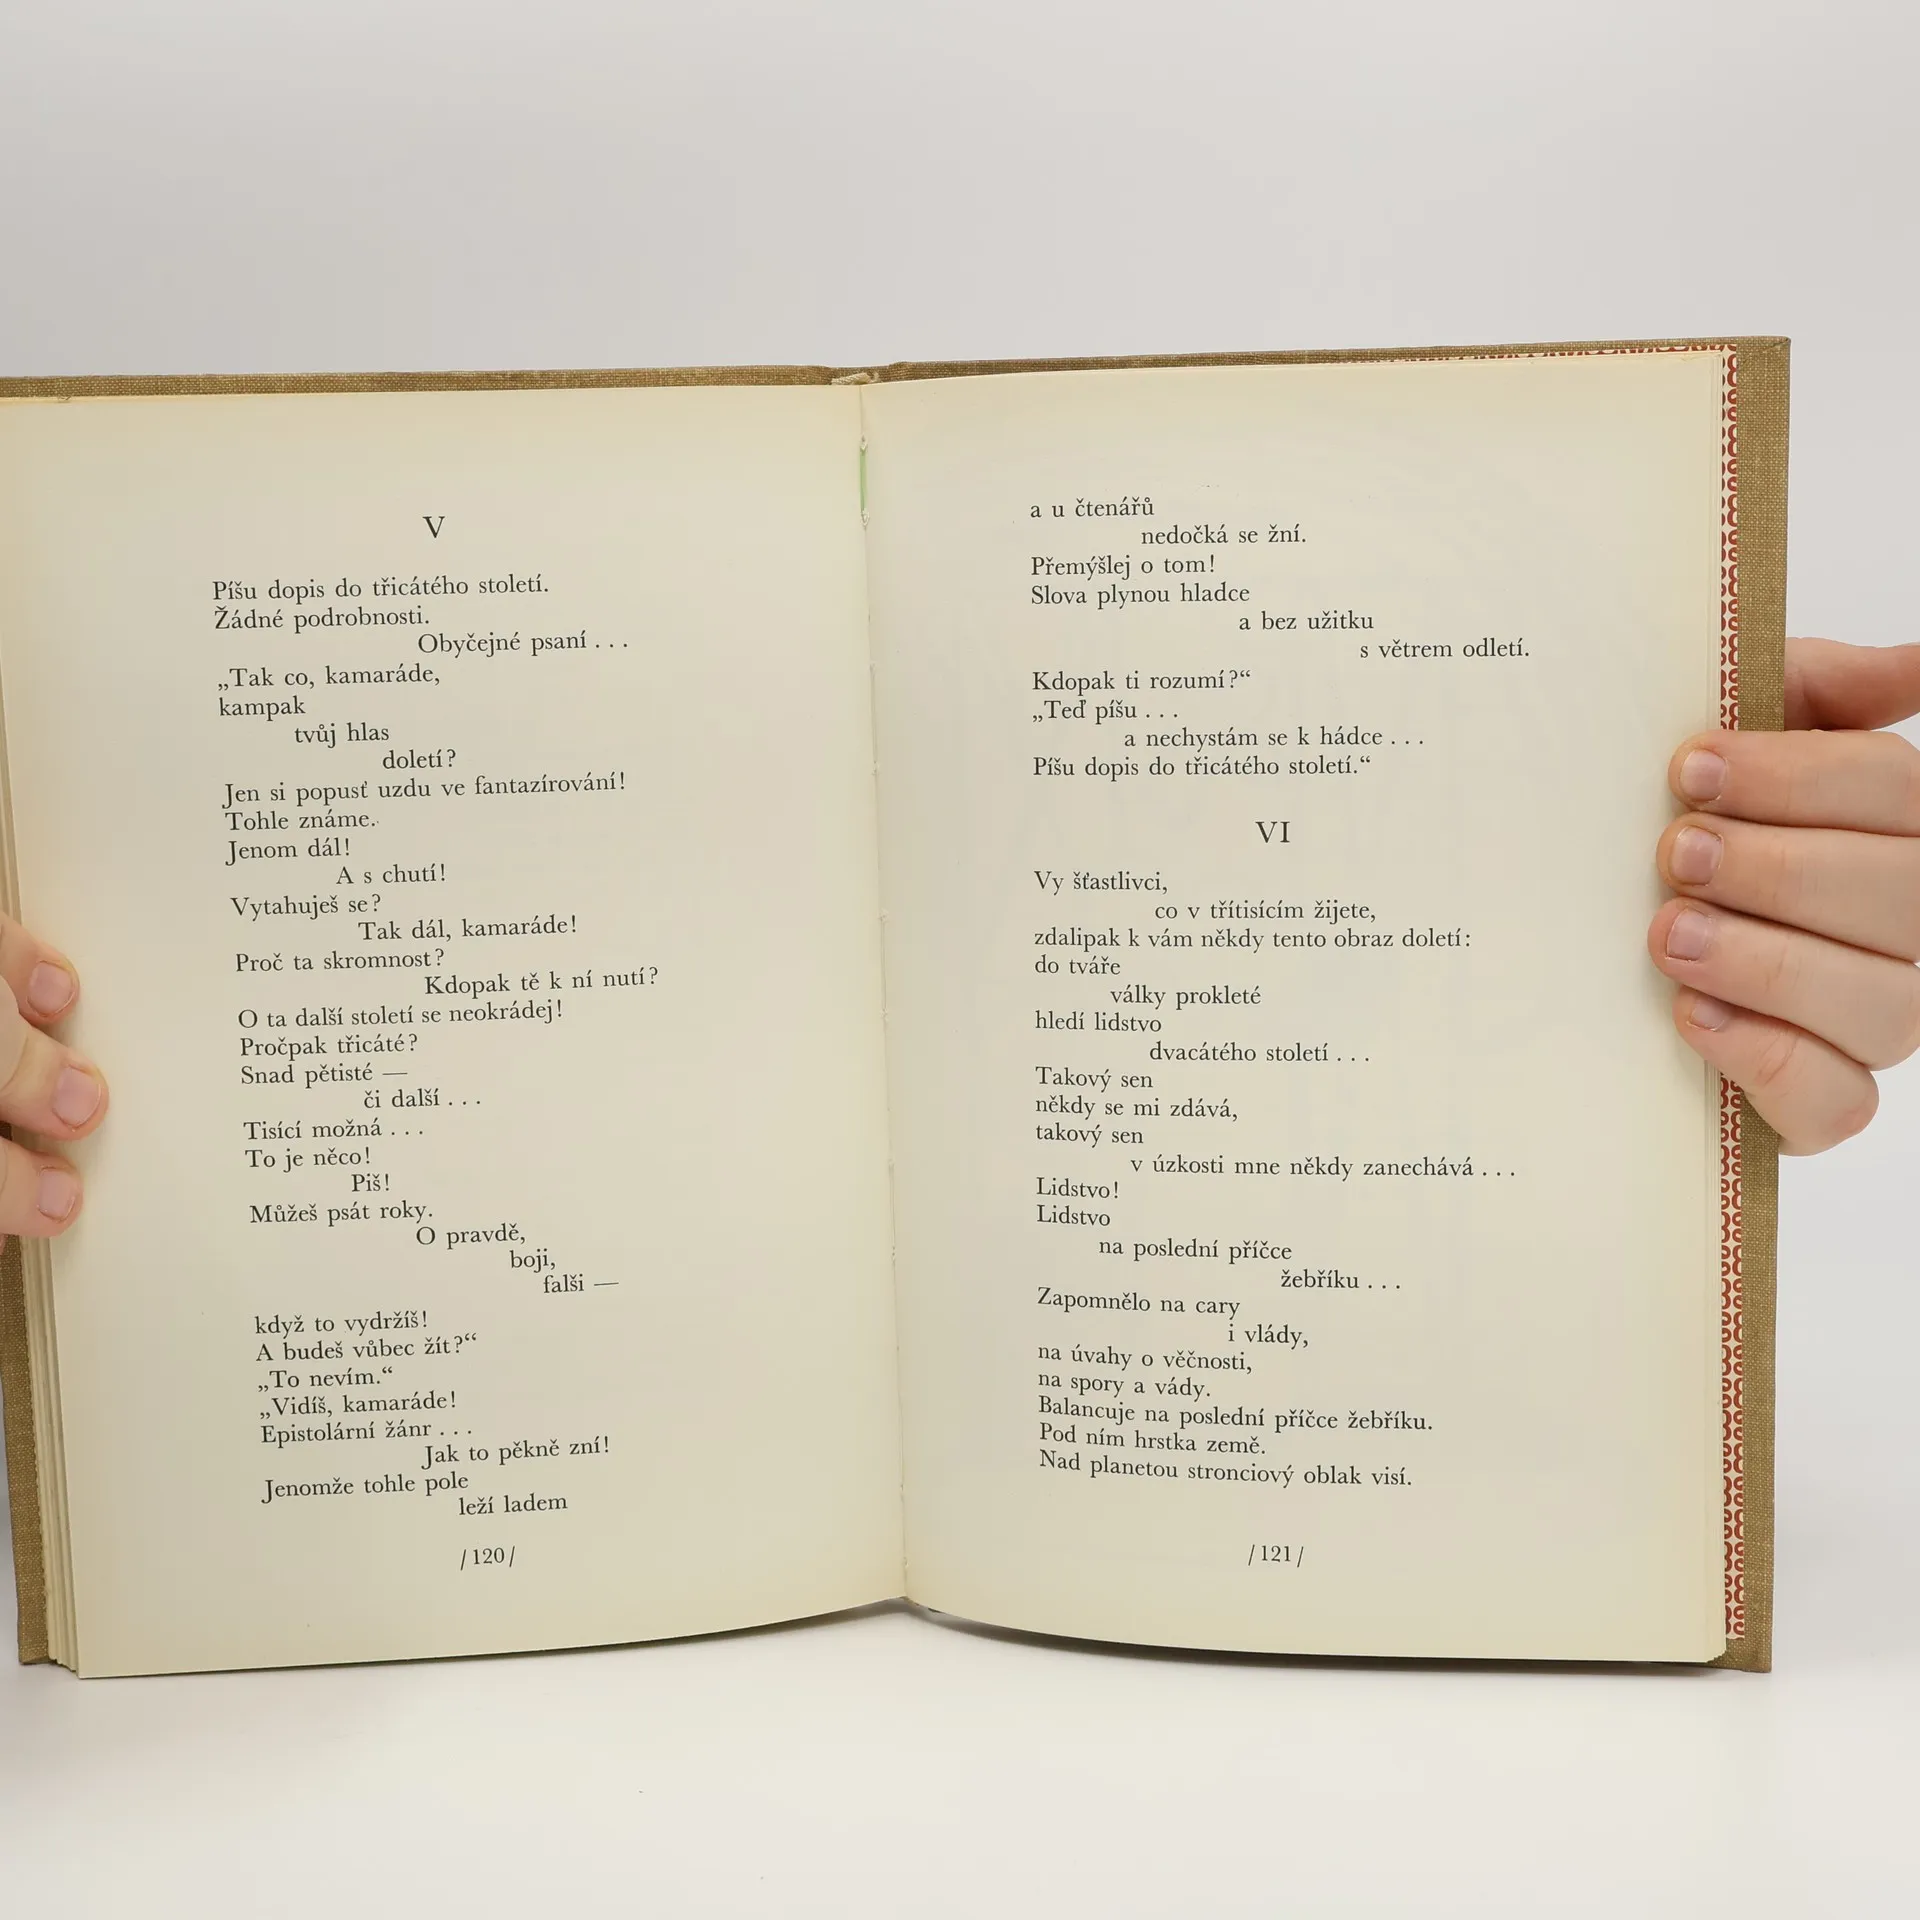 V
Píšu dopis do třicátého století.
Žádné podrobnosti.
Obyčejné psaní . . .
„Tak co, kamaráde,
kampak
tvůj hlas
doletí?
Jen si popusť uzdu ve fantazírování!
Tohle známe.
Jenom dál!
A s chutí!
Vytahuješ se?
Tak dál, kamaráde!
Proč ta skromnost?
Kdopak tě k ní nutí?
O ta další století se neokrádej!
Pročpak třicáté?
Snad pětisté —
či další . . .
Tisící možná . . .
To je něco!
Piš!
Můžeš psát roky.
O pravdě,
boji,
falši —
když to vydržíš!
A budeš vůbec žít?“
„To nevím.“
„Vidíš, kamaráde!
Epistolární žánr . . .
Jak to pěkně zní!
Jenomže tohle pole
leží ladem
/120/
a u čtenářů
nedočká se žní.
Přemýšlej o tom!
Slova plynou hladce
a bez užitku
s větrem odletí.
Kdopak ti rozumí?“
„Teď píšu . . .
a nechystám se k hádce . . .
Píšu dopis do třicátého století.“
VI
Vy šťastlivci,
co v třítisícím žijete,
zdalipak k vám někdy tento obraz doletí:
do tváře
války prokleté
hledí lidstvo
dvacátého století . . .
Takový sen
někdy se mi zdává,
takový sen
v úzkosti mne někdy zanechává . . .
Lidstvo!
Lidstvo
na poslední příčce
žebříku . . .
Zapomnělo na cary
i vlády,
na úvahy o věčnosti,
na spory a vády.
Balancuje na poslední příčce žebříku.
Pod ním hrstka země.
Nad planetou stronciový oblak visí.
/121/